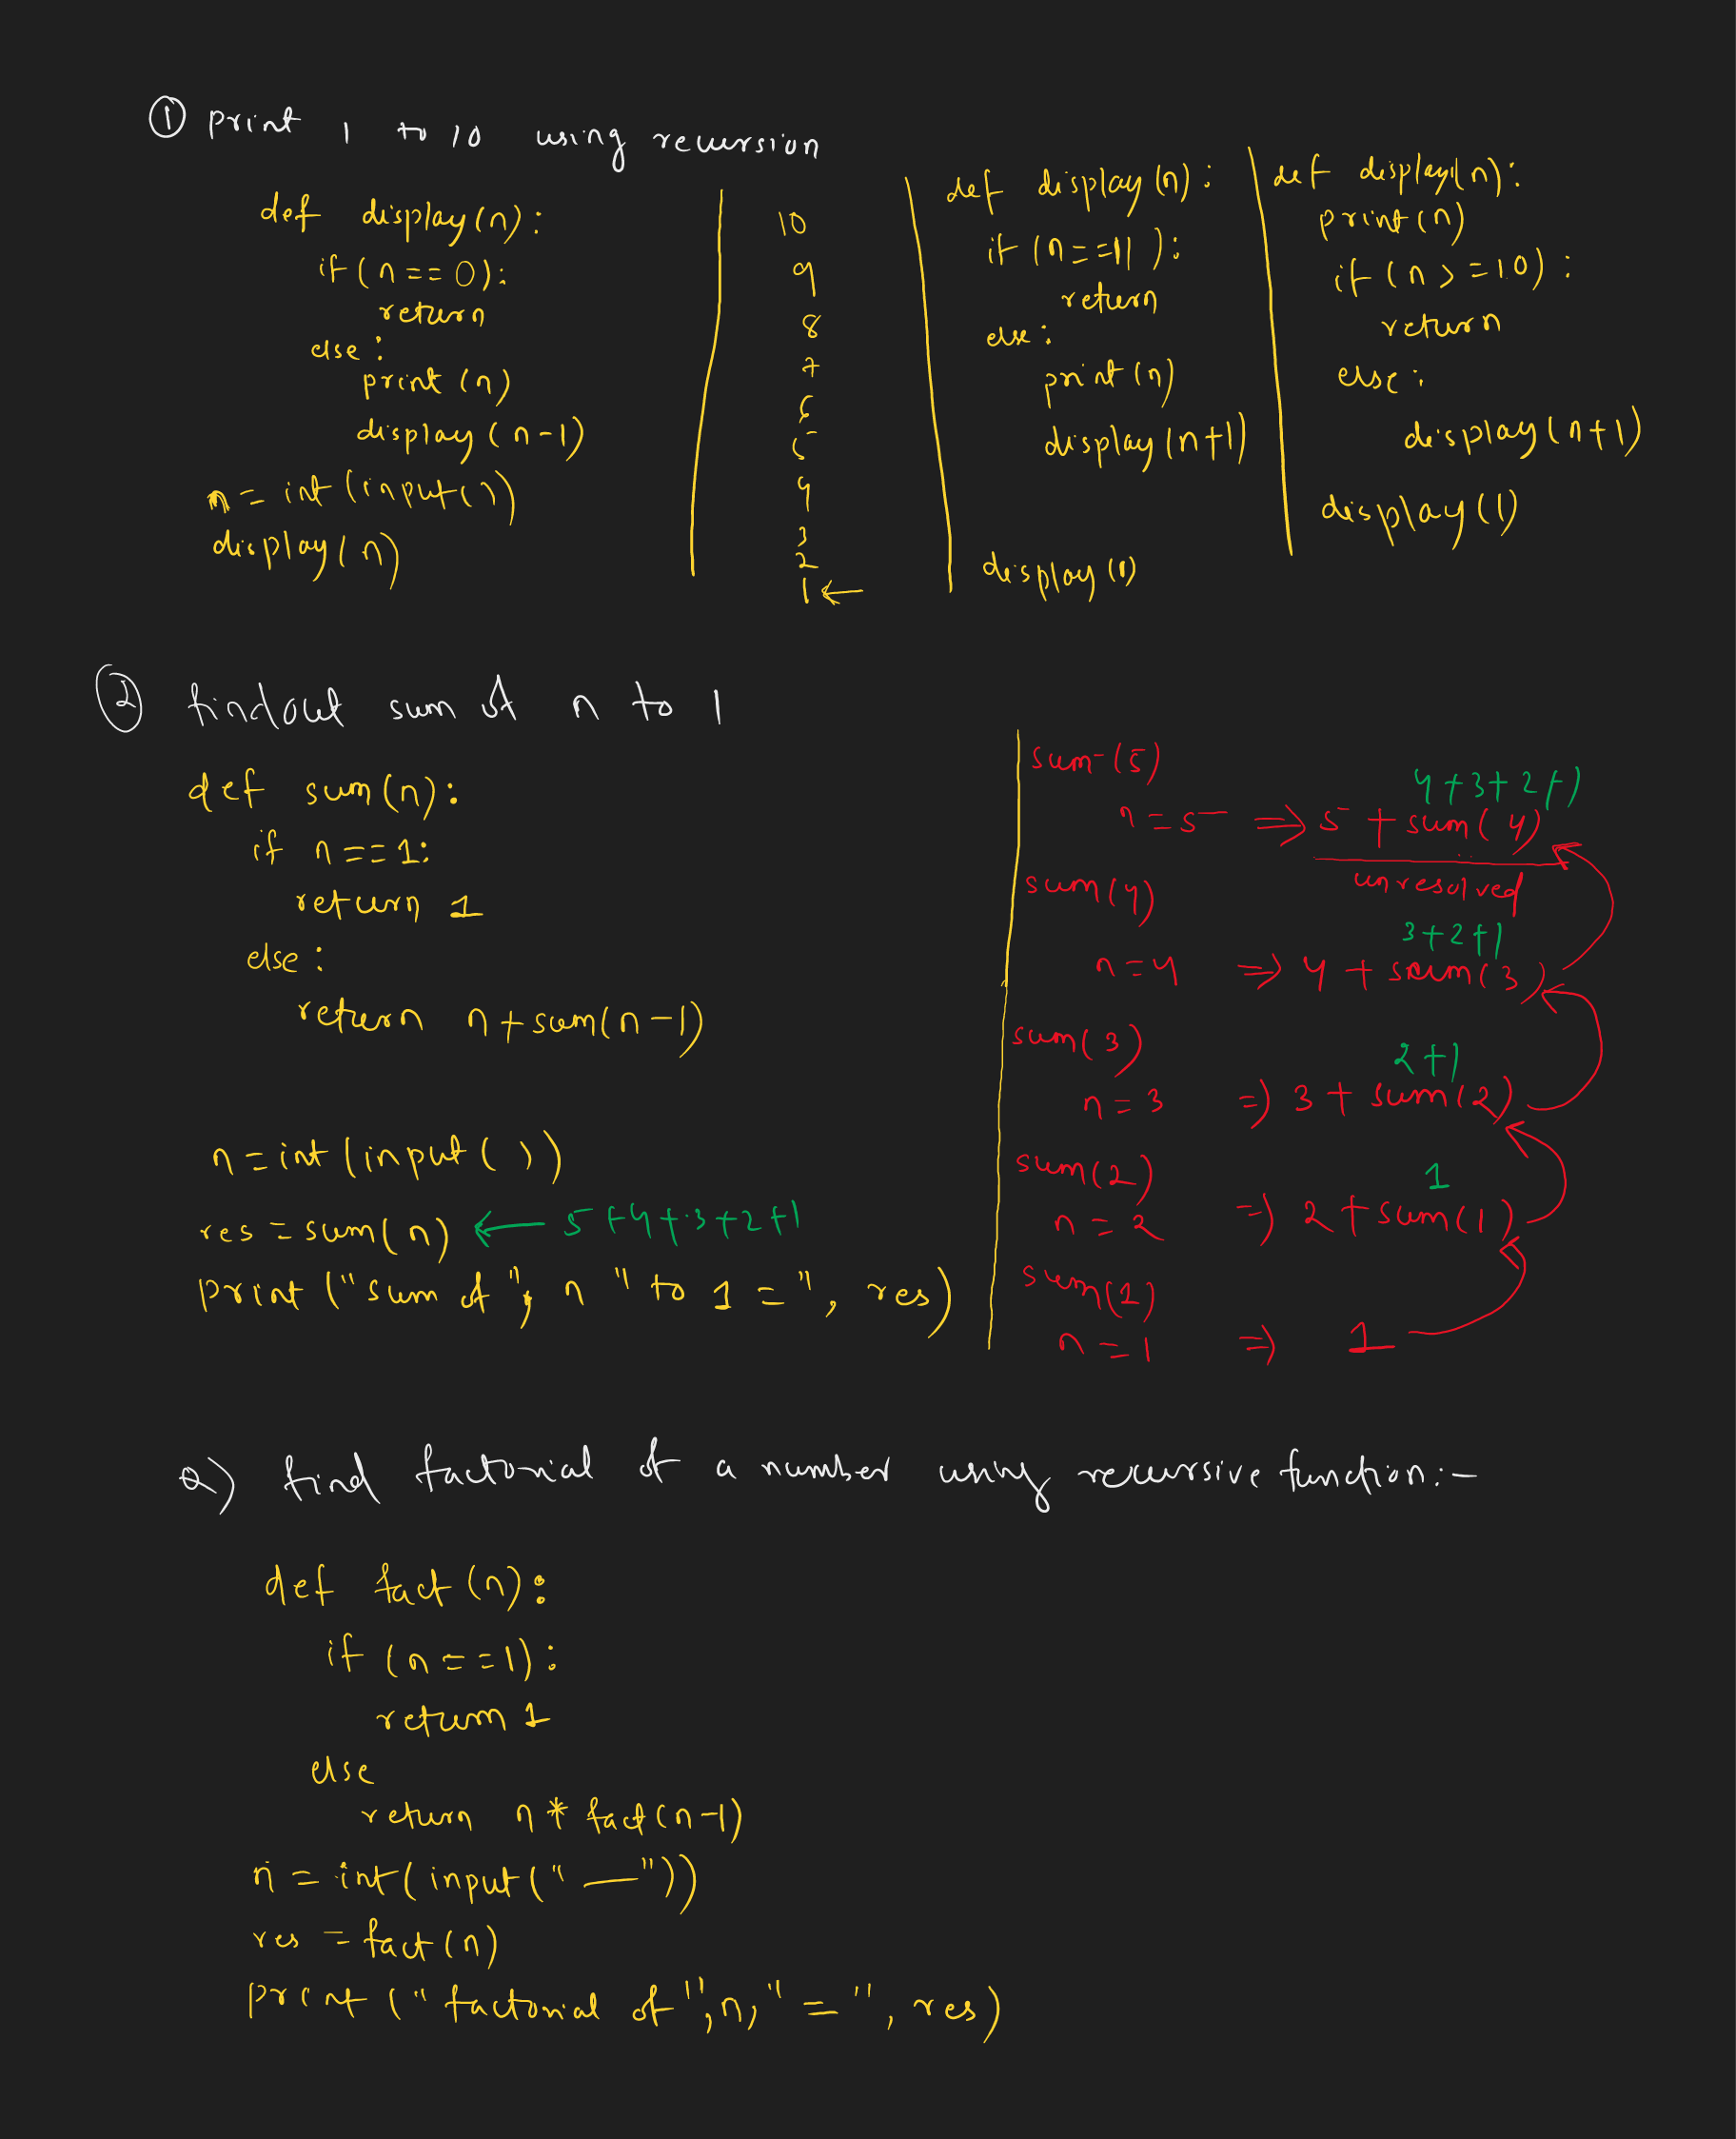 ① print 1 to 10 using recursion
def display(n):
if(n==0):
return
else:
print(n)
display(n-1)
n=int(input())
display(n)
10
9
8
7
6
5
4
3
2
1 ←
def display(n):
if(n==11):
return
else:
print(n)
display(n+1)
display(1)
def display(n):
print(n)
if(n>=10):
return
else:
display(n+1)
display(1)
② findout sum of n to 1
def sum(n):
if n==1:
return 1
else:
return n+sum(n-1)
n=int(input())
res=sum(n) ← 5+4+3+2+1
print("sum of", n "to 1=", res)
sum(5)
4+3+2+1
n=5 ⇒ 5+sum(4)
unresolved
sum(4)
3+2+1
n=4 ⇒ 4+sum(3)
sum(3)
2+1
n=3 ⇒ 3+sum(2)
sum(2)
1
n=2 ⇒ 2+sum(1)
sum(1)
n=1 ⇒ 1
Q) find factorial of a number using recursive function:-
def fact(n):
if(n==1):
return 1
else
return n*fact(n-1)
n=int(input("—"))
res=fact(n)
print("factorial of",n,"=",res)